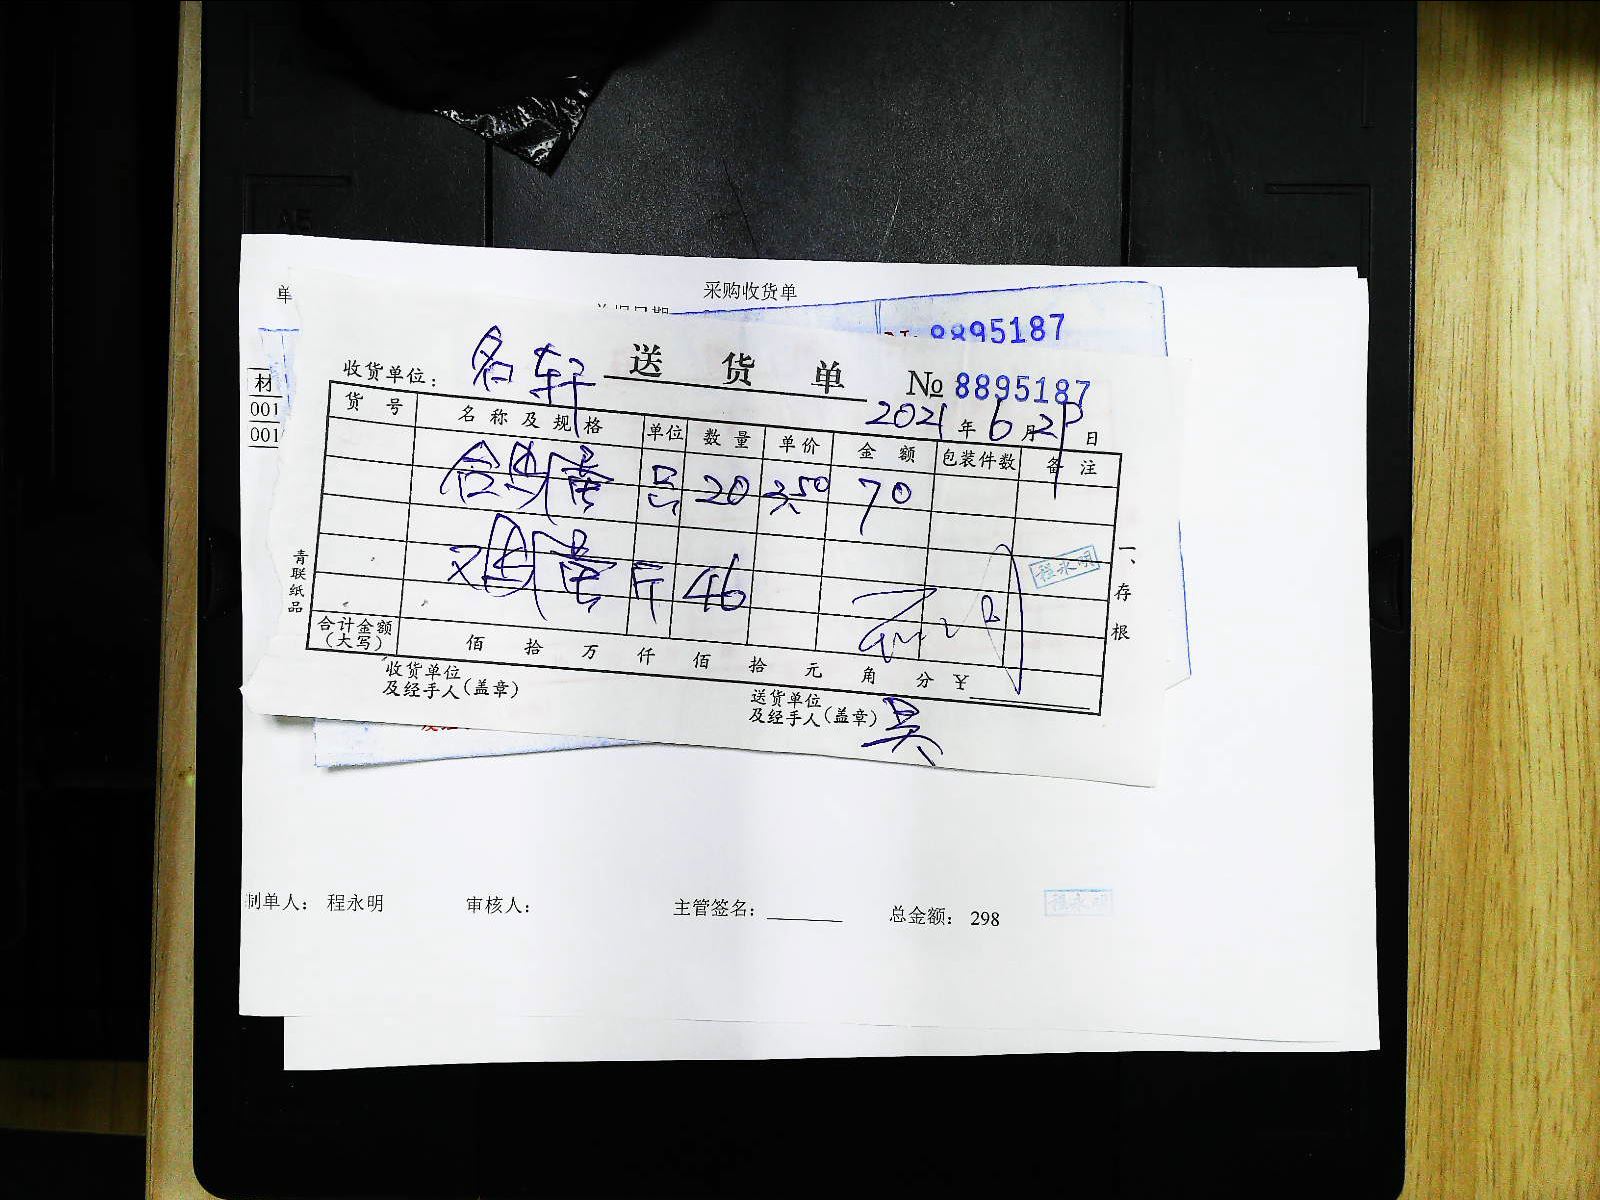 采购收货单
单
8895187
送货单
收货单位： 名轩
№ 8895187
2021年6月29日
货号 名称及规格 单位 数量 单价 金额 包装件数 备注
20 3.50 70
斤 46
程永明
青联纸品
一、存根
合计金额（大写） 佰 拾 万 仟 佰 拾 元 角 分 ￥
收货单位及经手人（盖章）
送货单位及经手人（盖章） 吴
材
001
001
制单人： 程永明 审核人： 主管签名： 总金额： 298
程永明